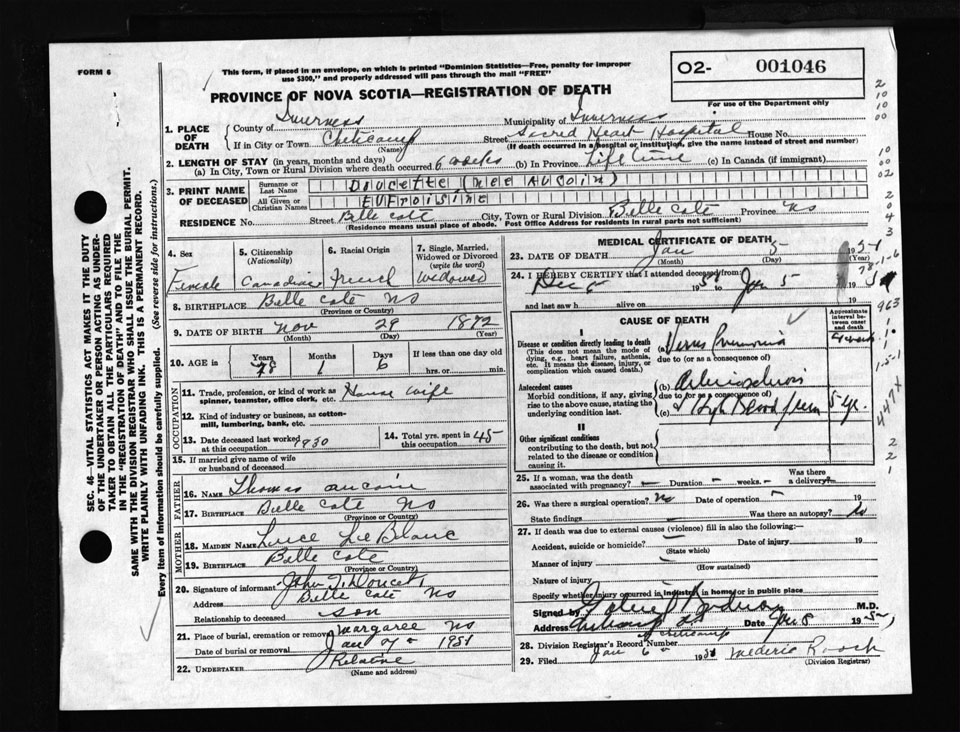 FORM 6
This form, if placed in an envelope, on which is printed "Dominion Statistics—Free, penalty for improper
use $300," and properly addressed will pass through the mail "FREE"
O2- 001046
For use of the Department only
PROVINCE OF NOVA SCOTIA—REGISTRATION OF DEATH
SEC. 46—VITAL STATISTICS ACT MAKES IT THE DUTY
OF THE UNDERTAKER OR PERSON ACTING AS UNDER-
TAKER TO OBTAIN ALL THE PARTICULARS REQUIRED
IN THE "REGISTRATION OF DEATH" AND TO FILE THE
SAME WITH THE DIVISION REGISTRAR WHO SHALL ISSUE THE BURIAL PERMIT.
WRITE PLAINLY WITH UNFADING INK. THIS IS A PERMANENT RECORD.
Every item of information should be carefully supplied. (See reverse side for instructions.)
1. PLACE OF DEATH
County of Inverness Municipality of Inverness
If in City or Town Cheticamp Street Sacred Heart Hospital House No.
(Name) (If death occurred in a hospital or institution, give the name instead of street and number)
2. LENGTH OF STAY (in years, months and days)
(a) In City, Town or Rural Division where death occurred 6 weeks (b) In Province Life time (c) In Canada (if immigrant)
3. PRINT NAME OF DECEASED
Surname or Last Name Doucette (nee Aucoin)
All Given or Christian Names Eufroisine
RESIDENCE No. Street Belle Cote City, Town or Rural Division Belle Cote Province NS
(Residence means usual place of abode. Post Office Address for residents in rural parts not sufficient)
4. Sex Female
5. Citizenship (Nationality) Canadian
6. Racial Origin French
7. Single, Married, Widowed or Divorced (write the word) Widowed
8. BIRTHPLACE Belle Cote NS
(Province or Country)
9. DATE OF BIRTH Nov 29 1872
(Month) (Day) (Year)
10. AGE in Years 78 Months 1 Days 6 If less than one day old
hrs. or min.
OCCUPATION
11. Trade, profession, or kind of work as spinner, teamster, office clerk, etc. House wife
12. Kind of industry or business, as cotton-
mill, lumbering, bank, etc.
13. Date deceased last worked at this occupation 1930
14. Total yrs. spent in this occupation 45
15. If married give name of wife
or husband of deceased
FATHER
16. NAME Thomas Aucoin
17. BIRTHPLACE Belle Cote NS
(Province or Country)
MOTHER
18. MAIDEN NAME Luce LeBlanc
19. BIRTHPLACE Belle Cote
(Province or Country)
20. Signature of informant John T. Doucet
Address Belle Cote NS
Relationship to deceased son
21. Place of burial, cremation or removal Margaree NS
Date of burial or removal Jan 7 1951
22. UNDERTAKER Relative
(Name and address)
MEDICAL CERTIFICATE OF DEATH
23. DATE OF DEATH Jan 5 1951
(Month) (Day) (Year)
24. I HEREBY CERTIFY that I attended deceased from:
Dec 5 1950 to Jan 5 1951
and last saw h alive on 19
CAUSE OF DEATH
Approximate interval between onset and death
I
Disease or condition directly leading to death
(This does not mean the mode of dying, e.g., heart failure, asthenia, etc. It means the disease, injury, or complication which caused death.)
(a) Pneumonia
due to (or as a consequence of)
Antecedent causes
Morbid conditions, if any, giving rise to the above cause, stating the underlying condition last.
(b) Arteriosclerosis
due to (or as a consequence of)
(c) High Blood 5 yr.
II
Other significant conditions
contributing to the death, but not related to the disease or condition causing it.
25. If a woman, was the death associated with pregnancy? — Duration — weeks — Was there a delivery?
26. Was there a surgical operation? No Date of operation 19
State findings Was there an autopsy? No
27. If death was due to external causes (violence) fill in also the following:—
Accident, suicide or homicide? Date of injury 19
(State which)
Manner of injury
(How sustained)
Nature of injury
Specify whether injury occurred in industry, in home, or in public place
Signed by M.D.
Address Date Jan 8 1951
28. Division Registrar's Record Number
29. Filed Jan 6 1951
(Division Registrar)